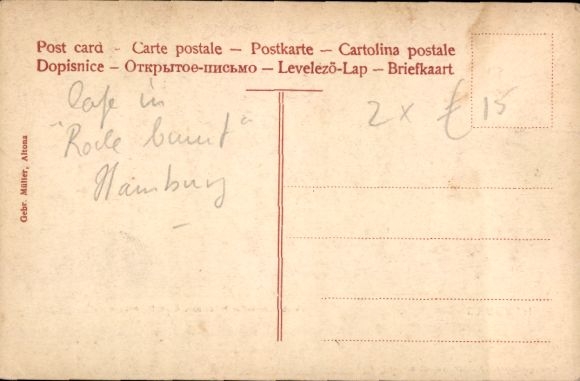 Post card - Carte postale — Postkarte — Cartolina postale
Dopisnice — Открытое-письмо — Levelező-Lap — Briefkaart
Cafe in
"Rode bunt"
Hamburg
2 x € 15
Gebr. Müller, Altona